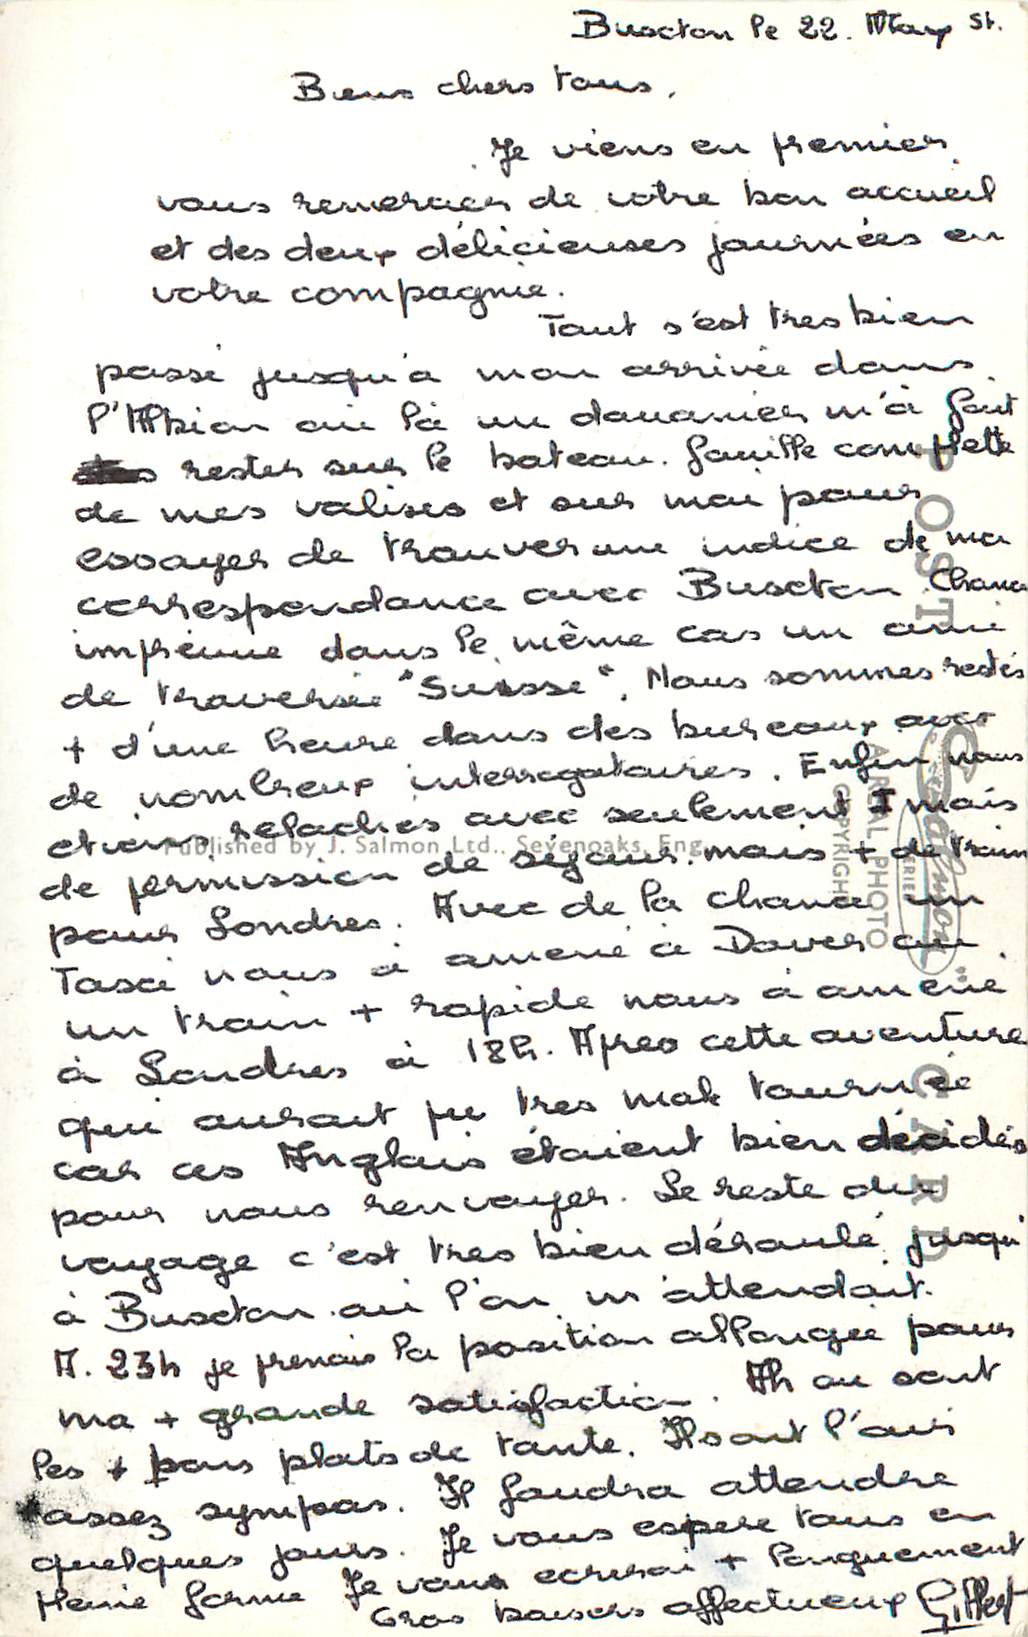 Buxton le 22. May St.
Biens chers tous,
Je viens en premier
vous remercier de votre bon accueil
et des deux délicieuses journées en
votre compagnie.
Tout s'est tres bien
passé jusqu'à mon arrivée dans
l'Albion ou là un douanier m'à fait
rester sur le bateau. fouille complette
de mes valises et sur moi pour
essayer de trouver une indice de ma
correspondance avec Buxton. Chance
dans le même cas un ami
de traversée "Suisse". Nous sommes restés
+ d'une heure dans des bureaux avec
de nombreux interrogatoires. Enfin nous
etions relachés avec seulement 1 mois
de permission de séjour. mais + de train
pour Londres. Avec de la chance un
Taxi nous à amené à Dover ou
un train + rapide nous à amené
à Londres à 18h. Apres cette aventure
qui aurait pu tres mal tourné
car ces Anglais étaient bien décidés
pour nous renvoyer. Le reste du
voyage c'est tres bien déroulé jusqu'
à Buxton ou l'on m'attendait.
A. 23h je prenais la position allongée pour
ma + grande satisfaction. Ah ou sont
les + bons plats de tante. Ils ont l'air
assez sympas. Il faudra attendre
quelques jours. Je vous espere tous en
Meme forme Je vous ecrirai + longuement
Gros baisers affectueux Gilbert
POST CARD
Published by J. Salmon Ltd., Sevenoaks, Eng.
Salmon
SERIES
AERIAL PHOTO
COPYRIGHT